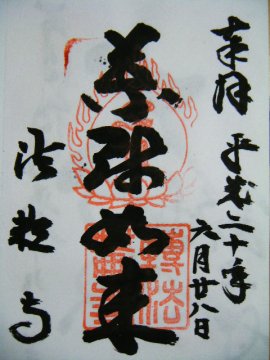 奉拝
平成二十年
六月廿八日
薬師如来
法
寺